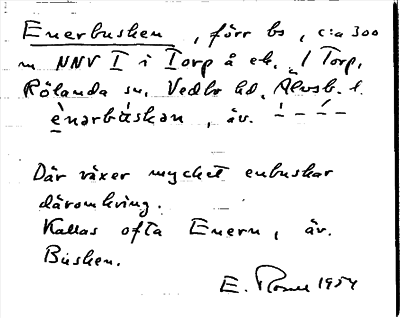 Enerbusken, förr bs, c:a 300
m NNV I i Torp å ek. 1 Torp,
Rölanda sn, Vedbo hd. Älvsb. l.
ènarbúskan, äv. ´ – ´ –
Där växer mycket enbuskar
däromkring.
Kallas ofta Enern, äv.
Busken.
E. 1954